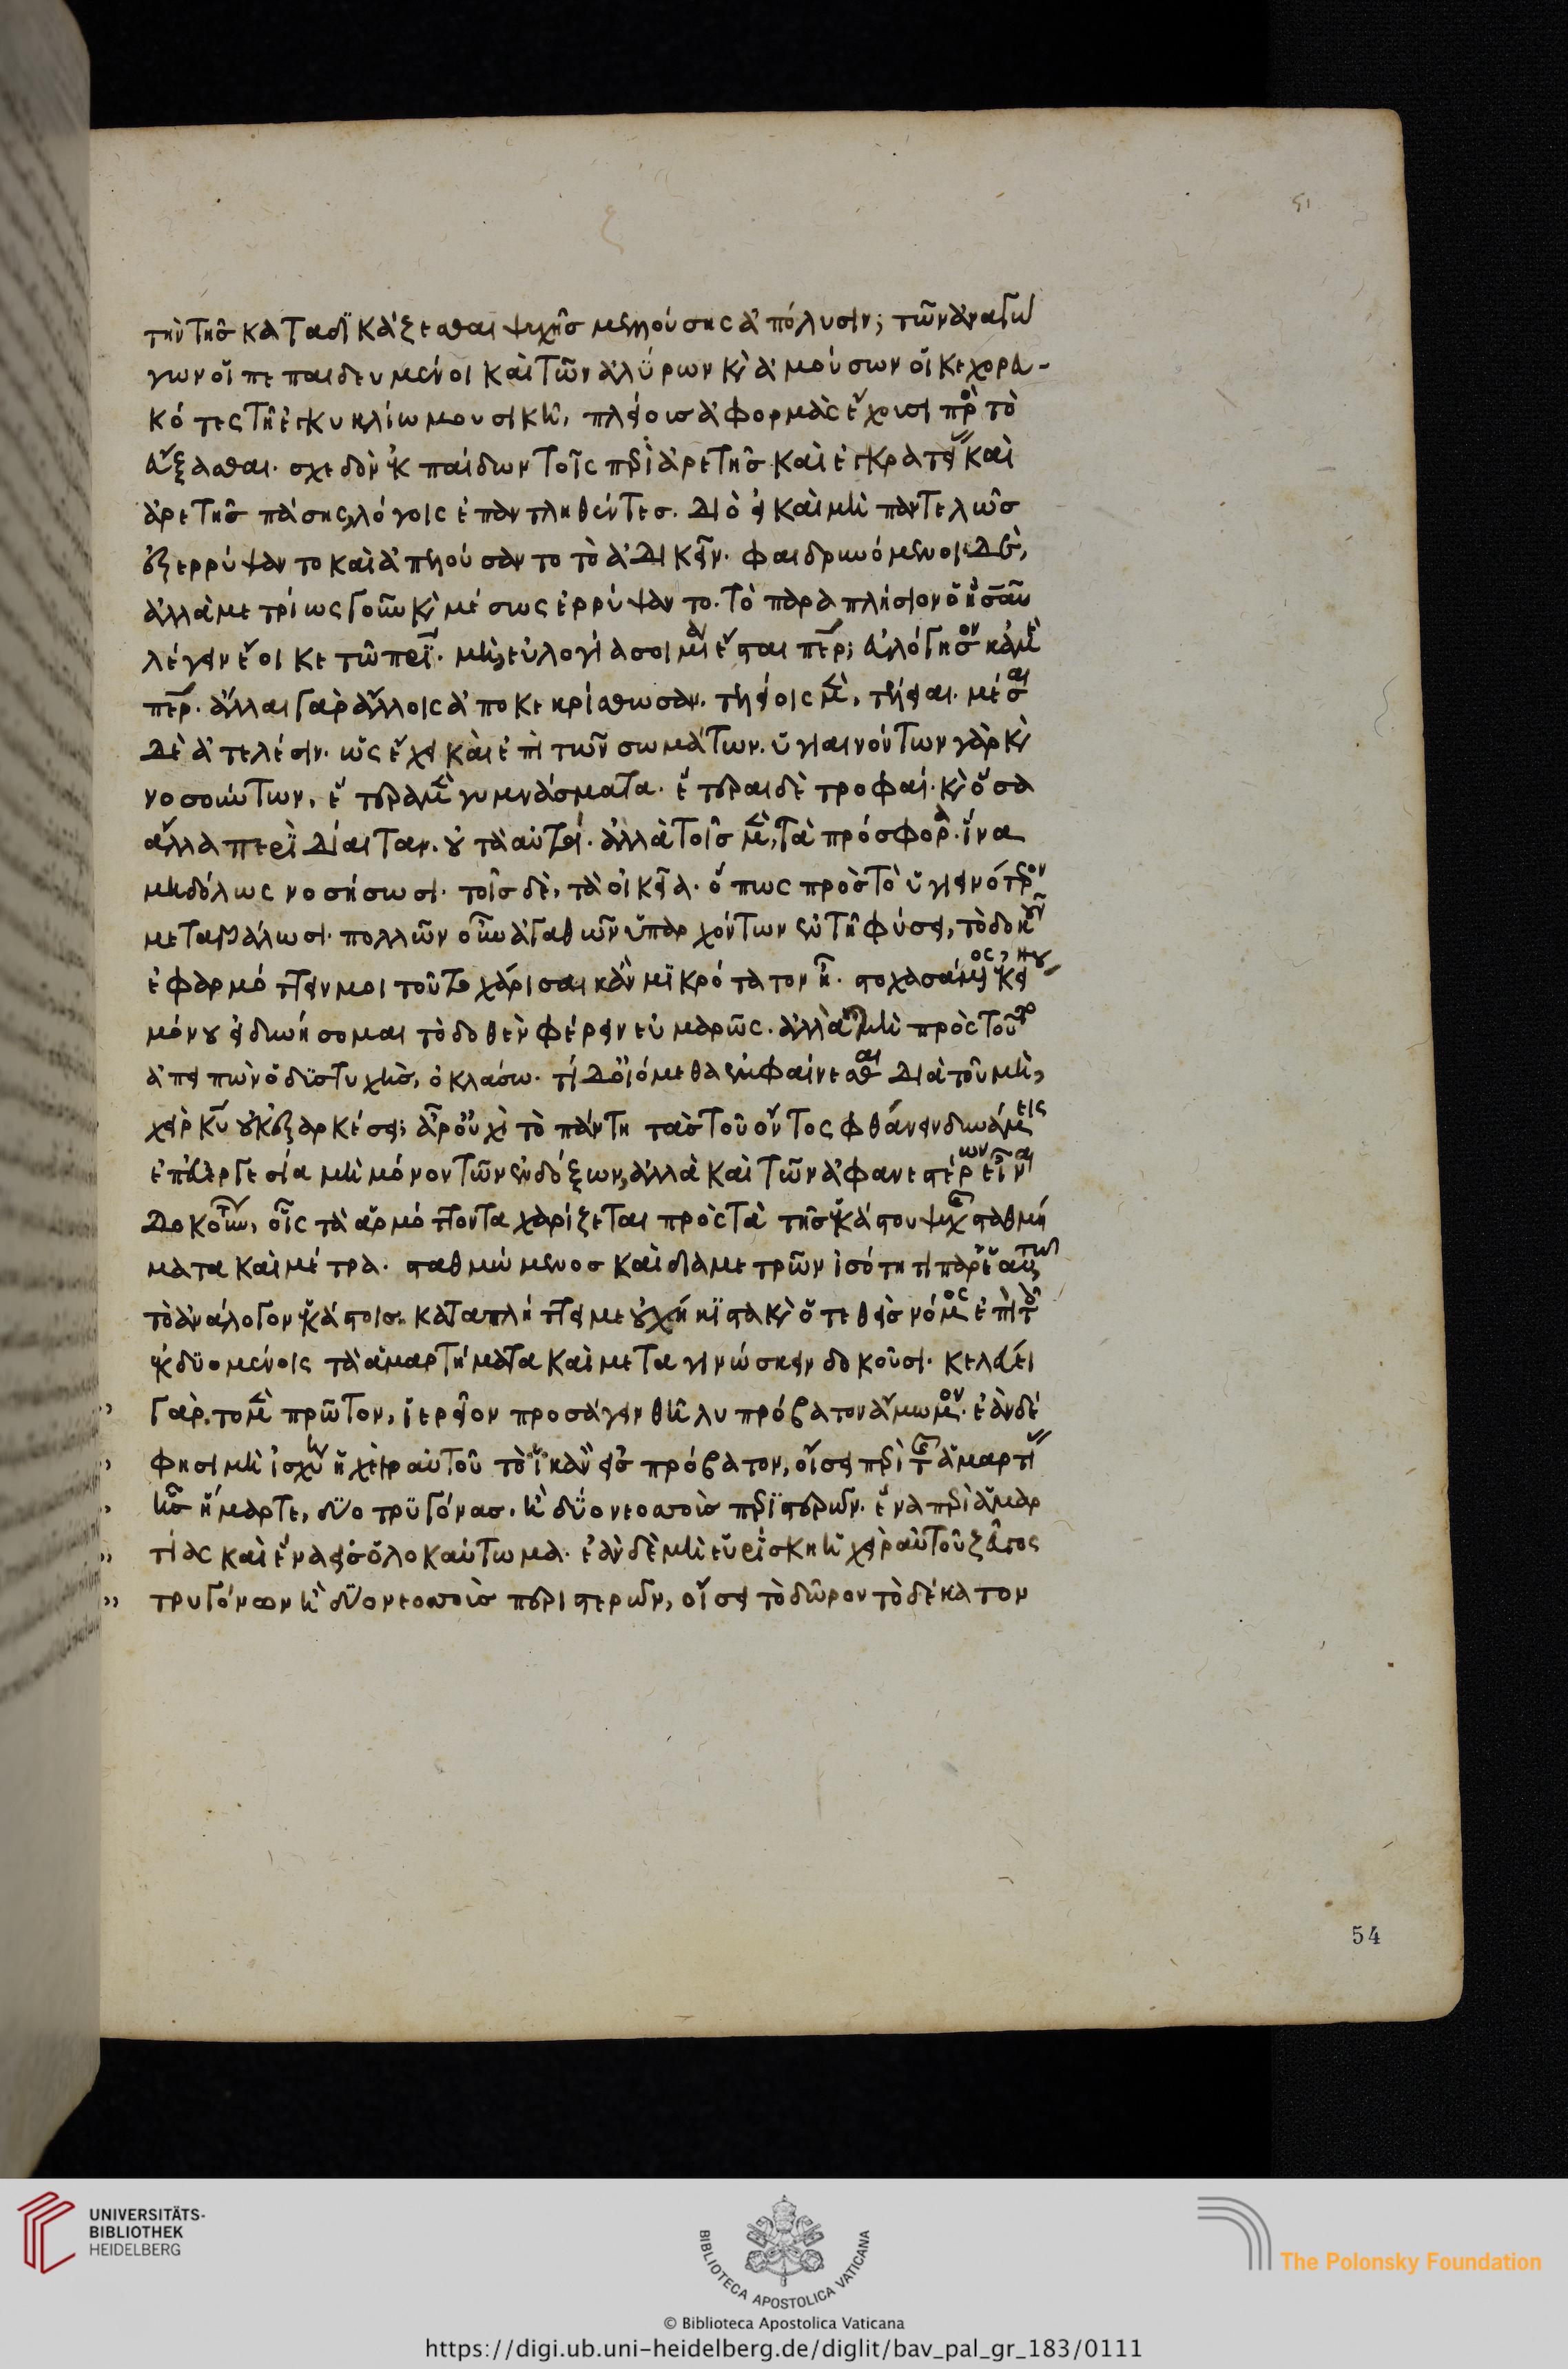 τὴν τῆς καταδικάζεσθαι ψυχῆς μελλούσης ἀπόλυσιν; τῶν ἀναγώ
γων οἱ πεπαιδευμένοι καὶ τῶν ἀλύρων κ(αὶ) ἀμούσων οἱ κεχορευ-
κότες τῇ ἐγκυκλίω μουσικῆ, πλείους ἀφορμὰς ἔχουσι πρὸς τὸ
εὔξασθαι. σχεδὸν ἐκ παίδων τοῖς περὶ ἀρετῆς καὶ ἐγκρατείας καὶ
ἀρετῆς πάσης λόγοις ἐπαντληθέντες. διὸ εἰ καὶ μὴ παντελῶς
ἐξερρύψαντο καὶ ἀπελούσαντο τὸ ἀδικεῖν. φαιδρυνόμενοι δὲ,
ἀλλὰ μετρίως γοῦν κ(αὶ) μέσως ἐρρύψαντο. τὸ παραπλήσιον ὁ ἡσαῦ
λέγειν ἔοικε τῶ πρι. μὴ εὐλογία σοι μία ἔσται περ; εὐλόγησον κἀμὲ
περ. ἄλλαι γὰρ ἄλλοις ἀποκεκρίσθωσαν. τελείοις μὲν, τέλειαι. μέσαι
δὲ ἀτελέσιν. ὡς ἔχει καὶ ἐπὶ τῶν σωμάτων. ὑγιαινόντων γὰρ κ(αὶ)
νοσούντων, ἕτερα μὲν γυμνάσματα. ἕτεραι δὲ τροφαί. κ(αὶ) ὅσα
ἄλλα περὶ δίαιταν. οὐ τὰ αὐτά. ἀλλὰ τοῖς μὲν, τὰ πρόσφορα. ἵνα
μηδόλως νοσήσωσι. τοῖς δὲ, τὰ οἰκεῖα. ὅπως πρὸς τὸ ὑγιεινότερον
μεταβάλωσι. πολλῶν οὖν ἀγαθῶν ὑπαρχόντων ἐν τῇ φύσει, τὸ δοκοῦν
ἐφαρμόττειν μοι τοῦτο χάρισαι κἂν μικρότατον ἦ. στοχασάμενος ἐκείνου
μόνου εἰ δυνήσομαι τὸ δοθὲν φέρειν εὐμαρῶς. ἀλλὰ μὴ πρὸς τοῦτο
ἀπειπὼν ὁ δυστυχὴς, ὀκλάσω. τί δ' οἰόμεθα ἐμφαίνεσθαι διὰ τοῦ μὴ,
χεὶρ κυ οὐκ ἐξαρκέσει; ἆρ' οὐχὶ τὸ πάντη τὰς τοῦ ὄντος φθάνειν δυνάμεις
ἐπ' εὐεργεσία μὴ μόνον τῶν ἐνδόξων, ἀλλὰ καὶ τῶν ἀφανεστέρων εἶναι
δοκούντων, οἷς τὰ ἁρμόττοντα χαρίζεται πρὸς τὰ τῆς ἑκάστου ψυχῆς σταθμή
ματα καὶ μέτρα. σταθμώμενος καὶ διαμετρῶν ἰσότητι παρ' ἑαυτῶ
τὸ ἀνάλογον ἑκάστοις. καταπλήττει με οὐχ ἥκιστα κ(αὶ) ὁ τεθεὶς νόμος ἐπὶ τοῦ
ἐκδυομένοις τὰ ἁμαρτήματα καὶ μεταγινώσκειν δοκοῦσι. κελεύει
γὰρ, τομὲν πρῶτον, ἱερεῖον προσάγειν θῆλυ πρόβατον ἄμωμον. ἐὰν δέ
φησι μὴ ἰσχύη ἡ χεὶρ αὐτοῦ τὸ ἱκανὸν εἰς πρόβατον, οἴσει περὶ τῆς ἁμαρτίας
ἧς ἥμαρτε, δύο τρυγόνας. ἢ δύο νεοσσοὺς περιστερῶν. ἕνα περὶ ἁμαρ
τίας καὶ ἕνα εἰς ὁλοκαύτωμα. ἐὰν δὲ μὴ εὑρίσκη ἡ χεὶρ αὐτοῦ ζεῦγος
τρυγόνων ἢ δύο νεοσσοὺς περιστερῶν, οἴσει τὸ δῶρον τὸ δέκατον
54
UNIVERSITÄTS-
BIBLIOTHEK
HEIDELBERG
BIBLIOTECA APOSTOLICA VATICANA
The Polonsky Foundation
© Biblioteca Apostolica Vaticana
https://digi.ub.uni-heidelberg.de/diglit/bav_pal_gr_183/0111